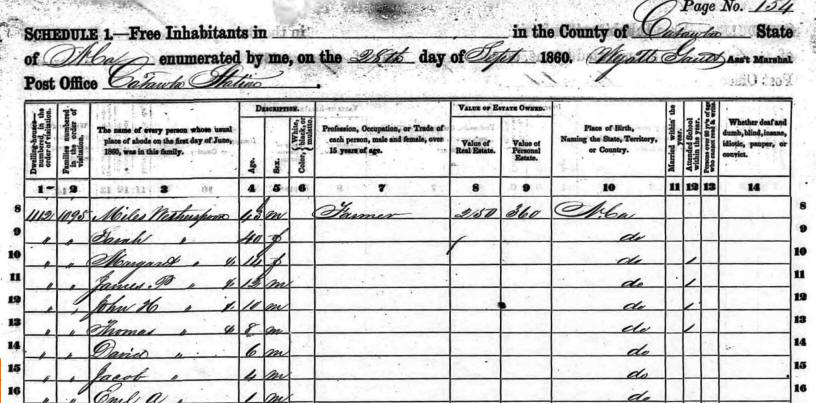 Page No. 154
SCHEDULE 1.—Free Inhabitants in in the County of Catawba State
of N.Ca enumerated by me, on the 28th day of Sept 1860. Wyatt Gantt Ass't Marshal
Post Office Catawba Station.
DESCRIPTION. VALUE OF ESTATE OWNED.
Dwelling-houses—numbered in the order of visitation. Families numbered in the order of visitation. The name of every person whose usual place of abode on the first day of June, 1860, was in this family. Age. Sex. Color, White, black, or mulatto. Profession, Occupation, or Trade of each person, male and female, over 15 years of age. Value of Real Estate. Value of Personal Estate. Place of Birth, Naming the State, Territory, or Country. Married within the year. Attended School within the year. Persons over 20 y'rs of age who cannot read & write. Whether deaf and dumb, blind, insane, idiotic, pauper, or convict.
1 2 3 4 5 6 7 8 9 10 11 12 13 14
8 1112 1095 Miles Witherspoon 45 m Farmer 250 360 N.Ca 8
9 " " Sarah " 40 f do 9
10 " " Margaret " 14 f do / 10
11 " " James P " 12 m do / 11
12 " " John H " 10 m do / 12
13 " " Thomas " 8 m do / 13
14 " " David " 6 m do 14
15 " " Jacob " 4 m do 15
16 " " A " 1 m do 16